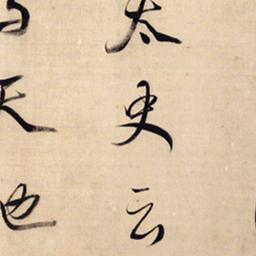 太史云
天也